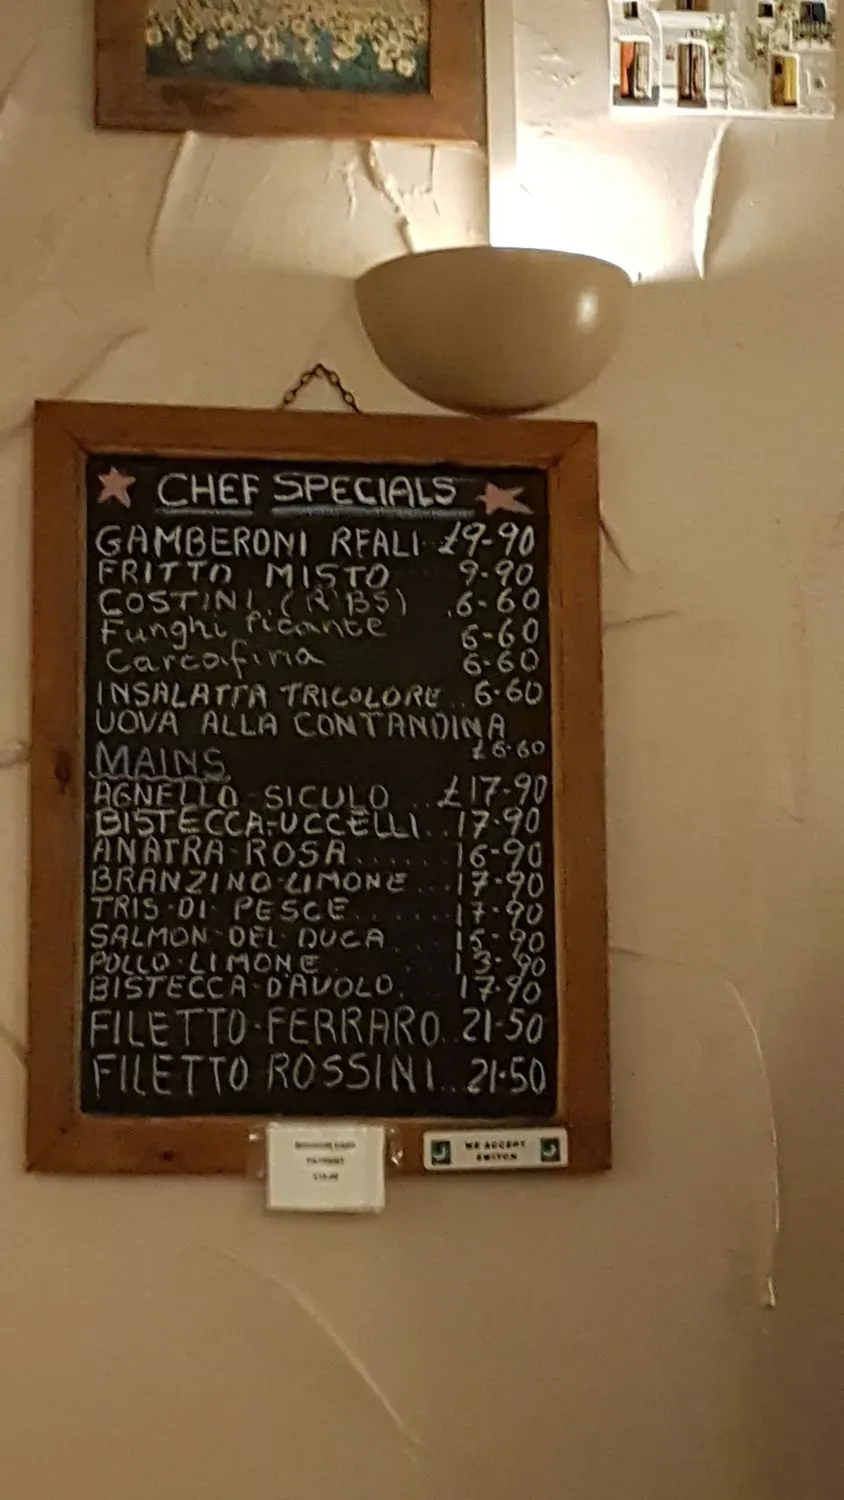 CHEF SPECIALS
GAMBERONI REALI £9-90
FRITTO MISTO 9-90
COSTINI (RIBS) .6-60
Funghi Picante 6-60
Carcofina 6-60
INSALATTA TRICOLORE .. 6-60
UOVA ALLA CONTANDINA
£6-60
MAINS
AGNELLO-SICULO ..£17-90
BISTECCA-UCCELLI..17-90
ANATRA-ROSA......16-90
BRANZINO-LIMONE ...17-90
TRIS-DI-PESCE......17-90
SALMON-DEL-DUCA ... 15-90
POLLO-LIMONE ... 13-90
BISTECCA-DAVOLO. 17-90
FILETTO-FERRARO..21-50
FILETTO ROSSINI...21-50
PAYMENT
WE ACCEPT
SWITCH